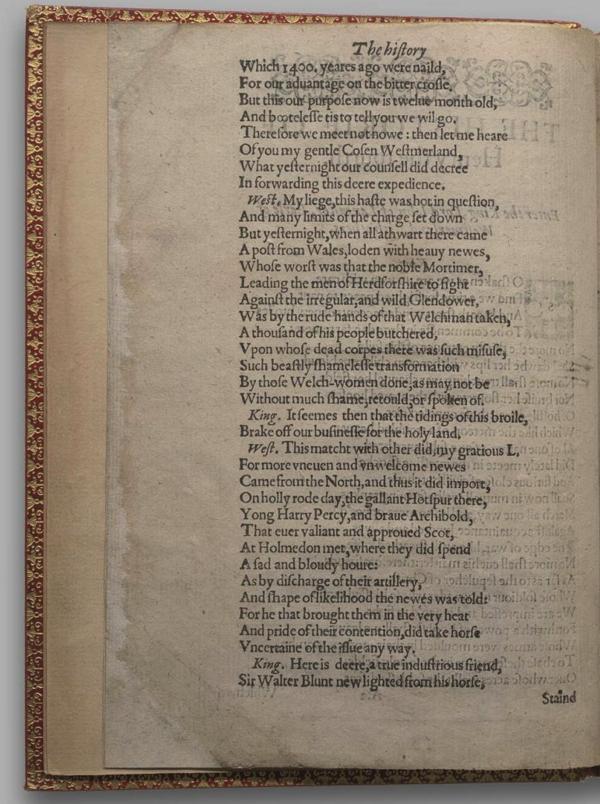 The hiſtory
Which 1400. yeares ago were naild,
For our aduantage on the bitter croſſe,
But this our purpoſe now is twelue month old,
And booteleſſe tis to tell you we wil go.
Therefore we meet not nowe: then let me heare
Of you my gentle Coſen Weſtmerland,
What yeſternight our counſell did decree
In forwarding this deere expedience.
Weſt. My liege, this haſte was hot in queſtion,
And many limits of the charge ſet down
But yeſternight, when all athwart there came
A poſt from Wales, loden with heauy newes,
Whoſe worſt was that the noble Mortimer,
Leading the men of Herdforſhire to fight
Againſt the irregular, and wild Glendower,
Was by the rude hands of that Welchman taken,
A thouſand of his people butchered,
Vpon whoſe dead corpes there was ſuch miſuſe,
Such beaſtly ſhameleſſe transformation
By thoſe Welch-women done, as may not be
Without much ſhame, retould, or ſpoken of.
King. It ſeemes then that the tidings of this broile,
Brake off our buſineſſe for the holy land.
Weſt. This matcht with other did, my gratious L.
For more vneuen and vnwelcome newes
Came from the North, and thus it did import,
On holly rode day, the gallant Hotſpur there,
Yong Harry Percy, and braue Archibold,
That euer valiant and approued Scot,
At Holmedon met, where they did ſpend
A ſad and bloudy houre:
As by diſcharge of their artillery,
And ſhape of likelihood the newes was told:
For he that brought them in the very heat
And pride of their contention, did take horſe
Vncertaine of the iſſue any way.
King. Here is deere, a true induſtrious friend,
Sir Walter Blunt new lighted from his horſe,
Staind